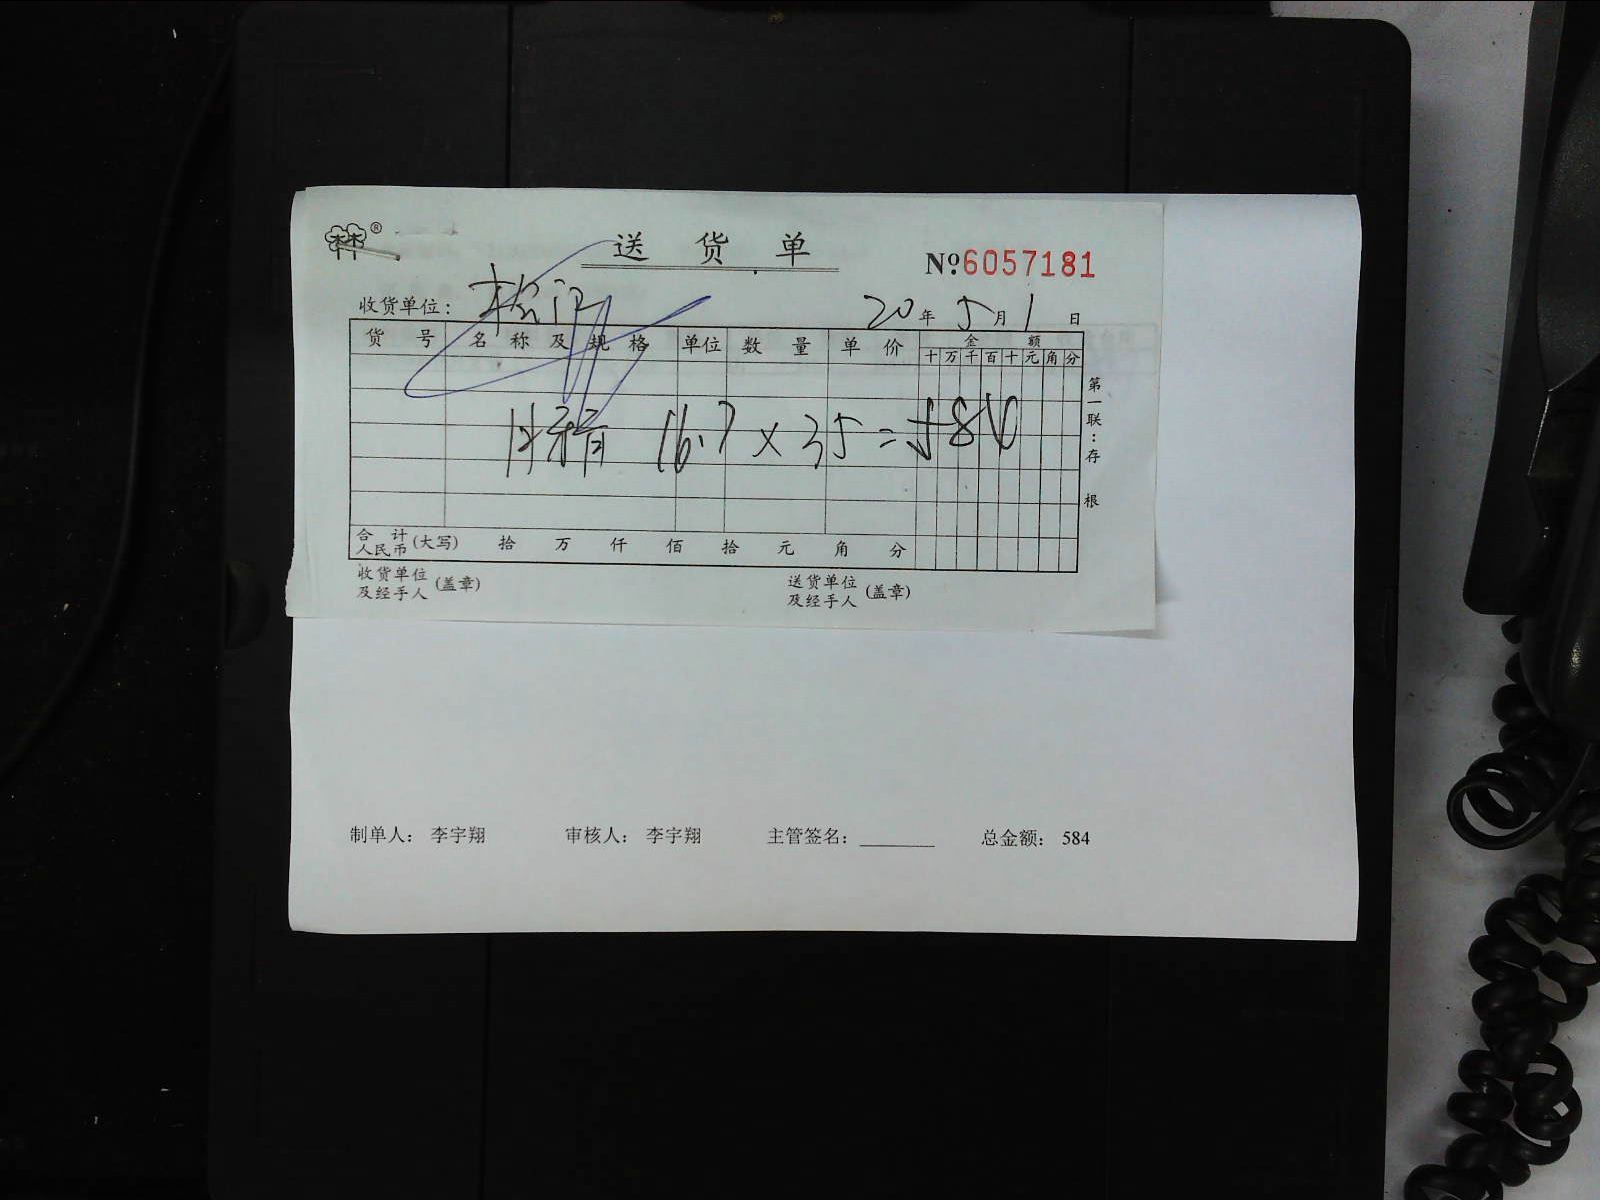 送货单
№6057181
收货单位：
20年5月1日
货号 名称及规格 单位 数量 单价 金额
十万千百十元角分
16.7×35=584
第一联：存根
合计人民币(大写) 拾 万 仟 佰 拾 元 角 分
收货单位及经手人(盖章) 送货单位及经手人(盖章)
制单人： 李宇翔 审核人： 李宇翔 主管签名： 总金额： 584